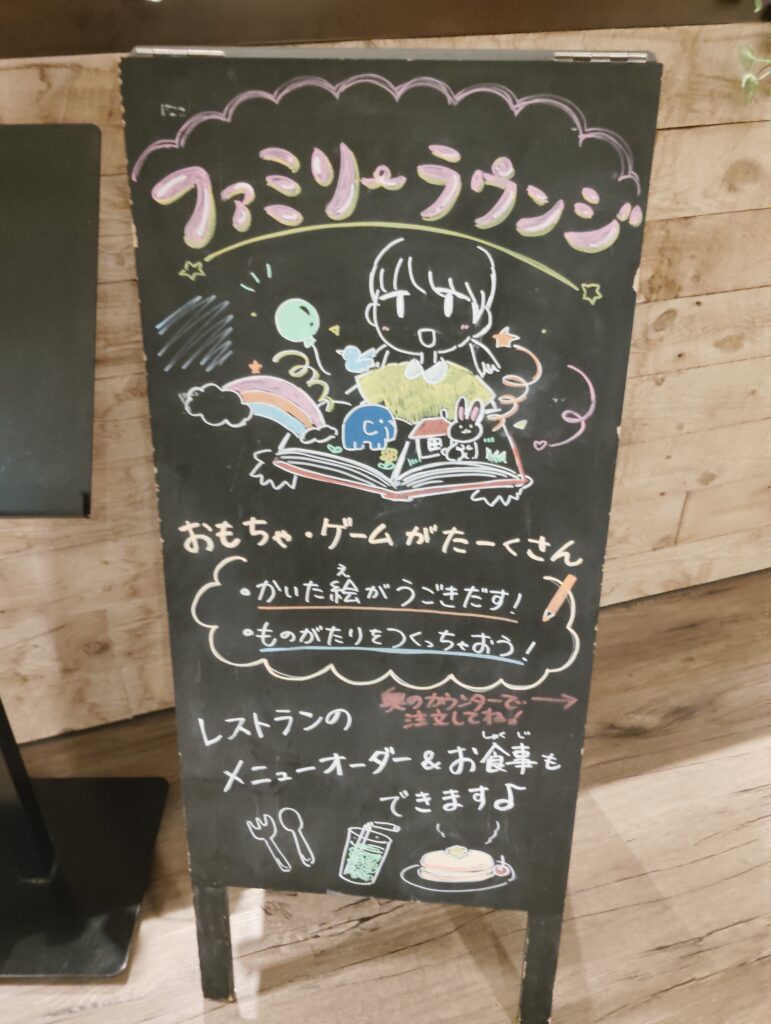 ファミリーラウンジ
おもちゃ・ゲームがたーくさん
・かいた絵がうごきだす!
え
・ものがたりをつくっちゃおう!
奥のカウンターで →
注文してね!
レストランの
メニューオーダー&お食事も
しょくじ
できます♪